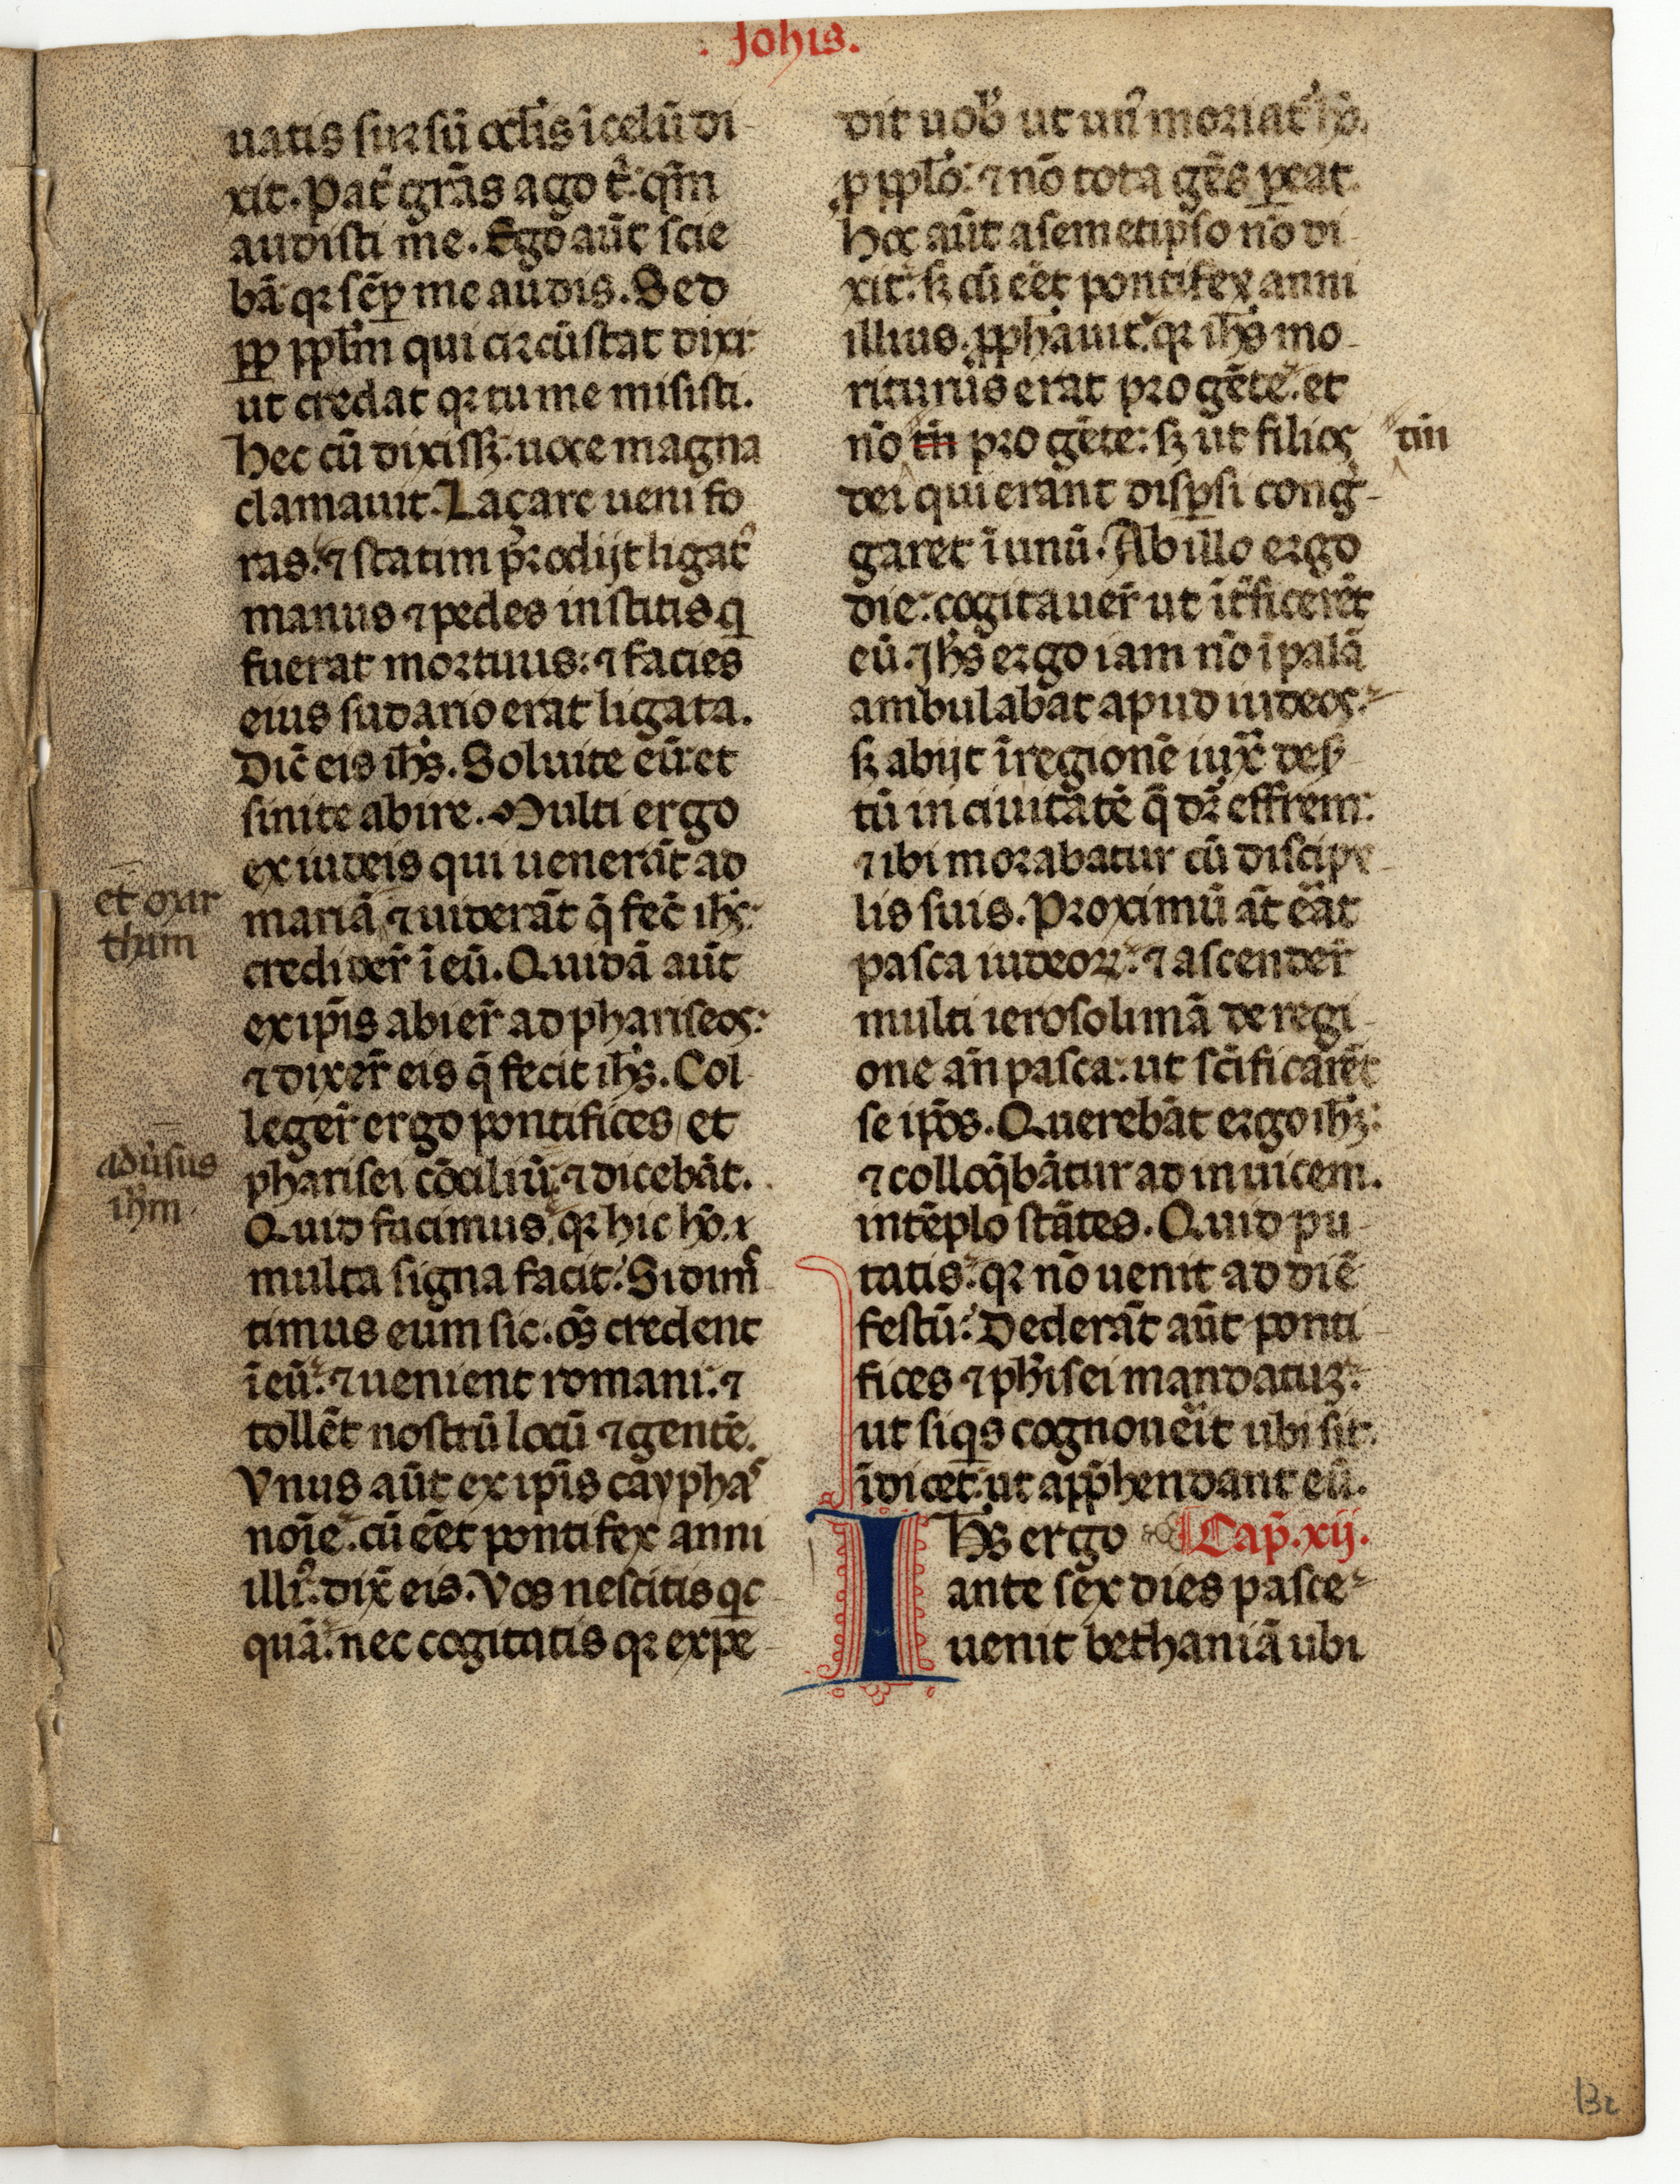 . Johis.
uatis sursū oc̄lis ī celū di-
xit. Pat̄ gr̄as ago t̄: qm̄
audisti me. Ego aūt scie
bā: qr sēꝑ me audis. Sed
ꝓp ppl̄m qui circūstat dixi:
ut credat qr tu me misisti.
Hec cū dixissꝫ: uoce magna
clamauit. Laçare ueni fo
ras: ⁊ statim prodijt ligatꝰ
manus ⁊ pedes institis q̄
fuerat mortuus: ⁊ facies
eius sudario erat ligata.
Dic̄ eis ih̄s. Soluite eū: et
sinite abire. Multi ergo
ex iudeis qui uenerāt ad
et mar
thām
mariā ⁊ uiderāt q̄ fec̄ ih̄s:
credider̄ ī eū. Quidā aūt
ex ip̄is abier̄ ad phariseos:
⁊ dixer̄ eis q̄ fecit ih̄s. Col
leger̄ ergo pontifices et
adūsus
ih̄m
pharisei cōciliū: ⁊ dicebāt.
Quid facimus: qr hic hō. ı
multa signa facit: Si dim̄
timus eum sic. om̄s credent
ī eū: ⁊ uenient romani: ⁊
tollēt nostrū locū ⁊ gentē.
Vnus aūt ex ip̄is cayphas
noīe. cū eēt pontifex anni
illiꝰ: dix̄ eis. Vos nescitis qc
quā: nec cogitatis qr expe-
dit uob̄ ut unꝰ moriat̄ hō.
ꝓ pplo: ⁊ nō tota gēs ꝑeat.
Hoc aūt a semetip̄so nō di
xit: sꝫ cū eēt pontifex anni
illius. ꝓph̄auit: qr ih̄s mo-
riturus erat pro gēte. et
nō tn̄ pro gēte: sꝫ ut filios
tm̄
dei qui erant disꝑsi conḡ-
garet ī unū. Ab illo ergo
die: cogitauer̄ ut īt̄ficerēt
eū. Jh̄s ergo iam nō ī palā
ambulabat apud iudeos:
sꝫ abijt ī regionē iux̄ des̄-
tū in ciuitatē q̄ dr̄ effrem:
⁊ ibi morabatur cū discipu-
lis suis. Proximū āt erat
pasca iudeoꝝ: ⁊ ascender̄
multi ierosolimā de regi-
one an̄ pasca: ut sc̄ificarēt
se ip̄os. Querebāt ergo ih̄ꝫ:
⁊ colloq̄bātur ad inuicem.
in tēplo stātes. Quid pu-
tatis: qr nō uenit ad diē
festū: Dederāt aūt ponti-
fices ⁊ ph̄isei mandatuꝫ:
ut siqs cognoueīt ubi sit:
īdicet: ut app̄hendant eū.
Ihs̄ ergo ¶ Cap̄. xij.
ante sex dies pasce
uenit bethaniā ubi
132